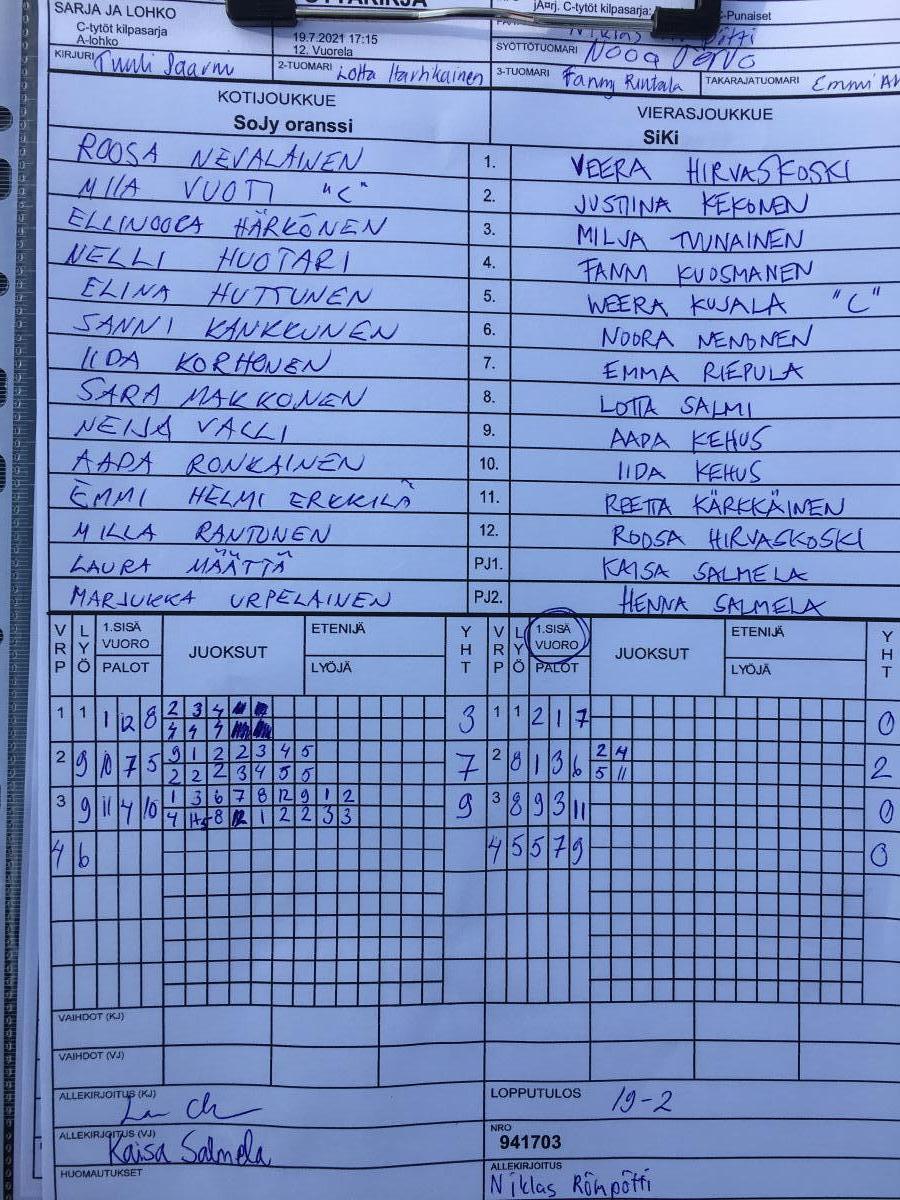 SARJA JA LOHKO
C-tytöt kilpasarja
A-lohko
19.7.2021 17:15
12. Vuorela
jArj. C-tytöt kilpasarja:
C-Punaiset
SYÖTTÖTUOMARI Nooa
KIRJURI Tuuli Saarni
2-TUOMARI Lotta Harhikainen
3-TUOMARI Fanny Rintala
TAKARAJATUOMARI Emmi
KOTIJOUKKUE
SoJy oranssi
VIERASJOUKKUE
SiKi
ROOSA NEVALAINEN 1. VEERA HIRVASKOSKI
MIIA VUOTI "C" 2. JUSTIINA KEKONEN
ELLINOORA HÄRKÖNEN 3. MILJA TUUNAINEN
NELLI HUOTARI 4. FANNI KUOSMANEN
ELINA HUTTUNEN 5. WEERA KUJALA "C"
SANNI KANKKUNEN 6. NOORA NENONEN
IIDA KORHONEN 7. EMMA RIEPULA
SARA MAKKONEN 8. LOTTA SALMI
NEIJA VALLI 9. AADA KEHUS
AADA RONKAINEN 10. IIDA KEHUS
EMMI HELMI ERKKILÄ 11. REETTA KÄRKKÄINEN
MILLA RANTUNEN 12. ROOSA HIRVASKOSKI
LAURA MÄÄTTÄ PJ1. KAISA SALMELA
MARJUKKA URPELAINEN PJ2. HENNA SALMELA
VRP LYÖ 1.SISÄ VUORO PALOT JUOKSUT ETENIJÄ LYÖJÄ YHT VRP LYÖ 1.SISÄ VUORO PALOT JUOKSUT ETENIJÄ LYÖJÄ YHT
1 1 1 12 8 2 3 4 3 1 1 2 1 7 0
4 4 4
2 9 10 7 5 9 1 2 2 3 4 5 7 2 8 1 3 6 2 4 2
2 2 2 3 4 5 5 5 11
3 9 11 4 10 1 3 6 7 8 12 9 1 2 9 3 8 9 3 11 0
4 8 12 1 2 2 3 3
4 6 4 5 5 7 9 0
VAIHDOT (KJ)
VAIHDOT (VJ)
ALLEKIRJOITUS (KJ)
LOPPUTULOS 19-2
ALLEKIRJOITUS (VJ) Kaisa Salmela
NRO
941703
HUOMAUTUKSET
ALLEKIRJOITUS
Niklas Römpötti